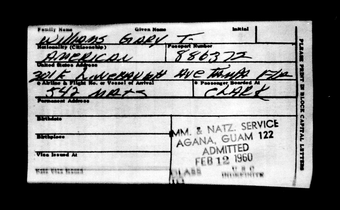 Family Name Given Name Initial
Williams Gary T.
Nationality (Citizenship) Passport Number
American 886372
United States Address
Ave Tampa Fla
Airline & Flight No. or Vessel of Arrival Passenger Boarded At
542 MATS CLARK
Permanent Address
Birthdate
Birthplace
Visa Issued At
IMM. & NATZ. SERVICE
AGANA, GUAM 122
ADMITTED
FEB 12 1960
CLASS U S C
INDEFINITE
PLEASE PRINT IN BLOCK CAPITAL LETTERS